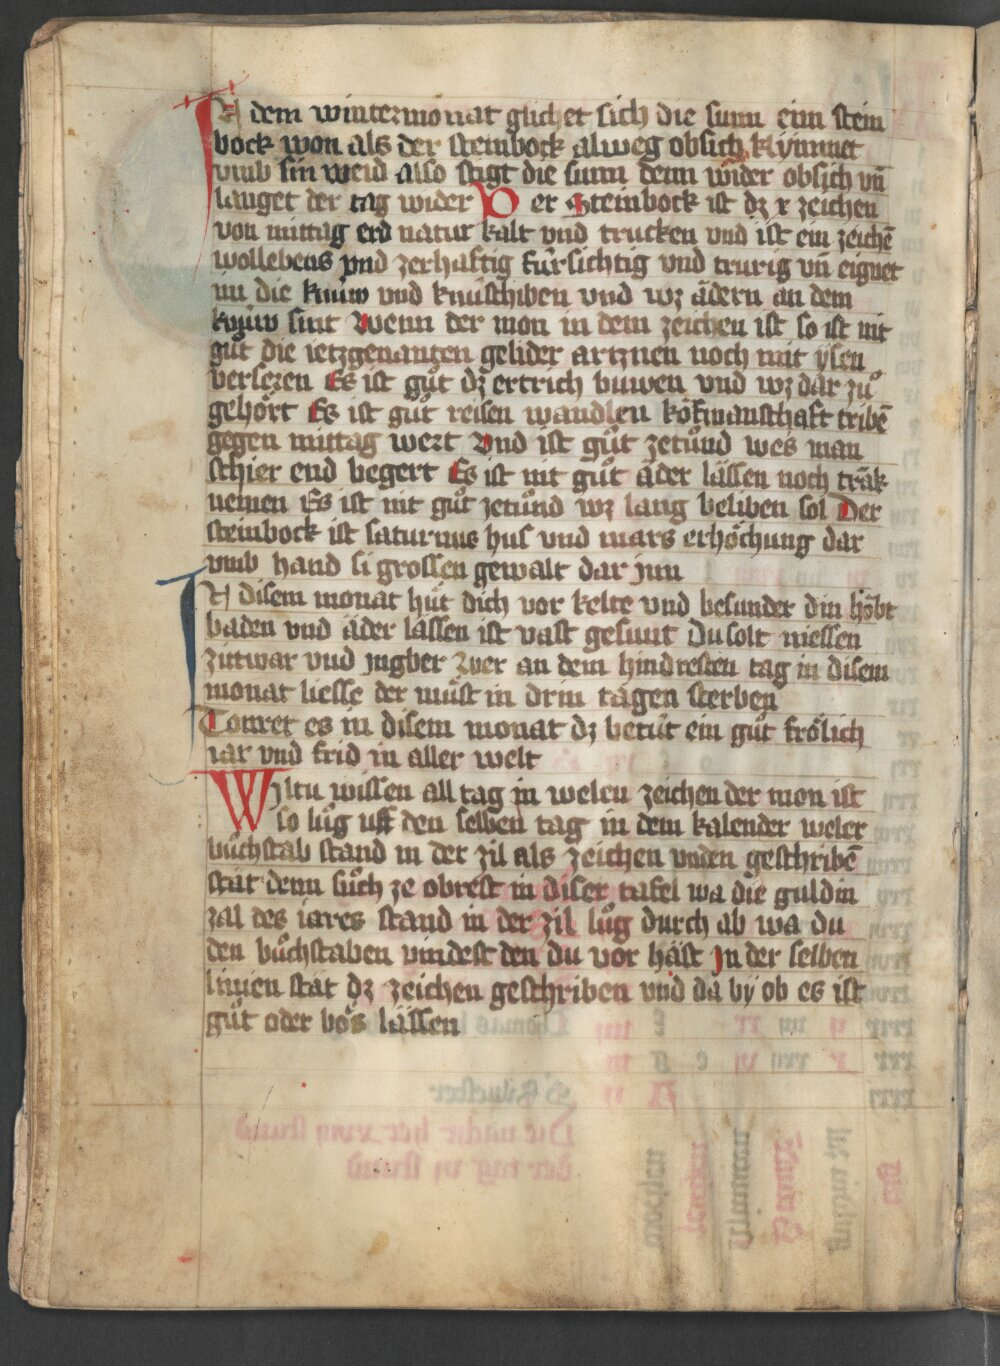 In dem wintermonat glichet sich die sunn eim stein
bock won als der steinbock alweg obsich klÿmmet
vmb sin weid also stigt die sunn denn wider obsich vn̄
langet der tag wider Der Steinbock ist dz x zeichen
von mittag erd natur kalt vnd trucken vnd ist ein zeichē
wollebens vnd zerhaftig fürsichtig vnd trurig vn̄ eignet
im die knüw vnd knüschiben vnd wz ädern an dem
knüw sint Wenn der mon in dem zeichen ist so ist nit
gůt die ietzgenanten gelider artznen noch mit ÿsen
verserzen Es ist gůt dz ertrich buwen vnd wz dar zů
gehört Es ist gůt reisen wandlen kǒfmanschaft tribē
gegen mittag wert Vnd ist gůt zetůnd wes man
schier end begert Es ist nit gůt ader lässen noch träk
nemen Es ist nit gůt zetůnd wz lang beliben sol Der
steinbock ist saturnus hus vnd mars erhöchung dar
vmb hand si grossen gewalt dar jnn
In disem monat hüt dich vor kelte vnd besunder din hǒbt
baden vnd ader lässen ist vast gesunt Du solt niessen
zitwar vnd jngber Wer an dem hindresten tag in disem
monat liesse der müst in drin tagen sterben
Tonret es in disem monat dz betüt ein gůt frölich
iar vnd frid in aller welt
Wiltu wissen all tag in welen zeichen der mon ist
so lůg uff den selben tag in dem kalender weler
bůchstab stand in der zil als zeichen vnden geschribē
stät denn sůch ze obrest in diser tafel wa die guldin
zal des iares stand in der zil lůg durch ab wa du
den bůchstaben vindest den du vor häst Jn der selben
linien stät dz zeichen geschriben vnd da bÿ ob es ist
gůt oder bös lässen